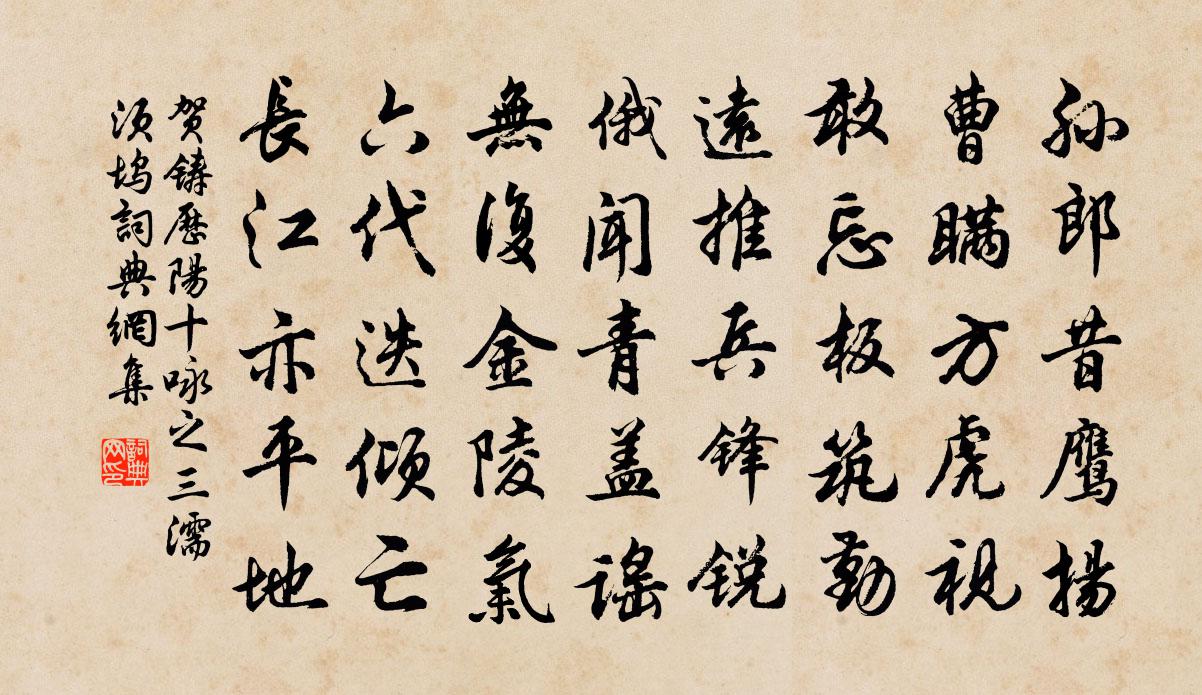 孙郎昔鹰扬
曹瞒方虎视
敢忘板筑勤
遠推兵锋锐
俄闻青盖谣
無復金陵氣
六代迭倾亡
長江亦平地
贺铸歷陽十咏之三濡
须坞詞典網集
詞典
网印